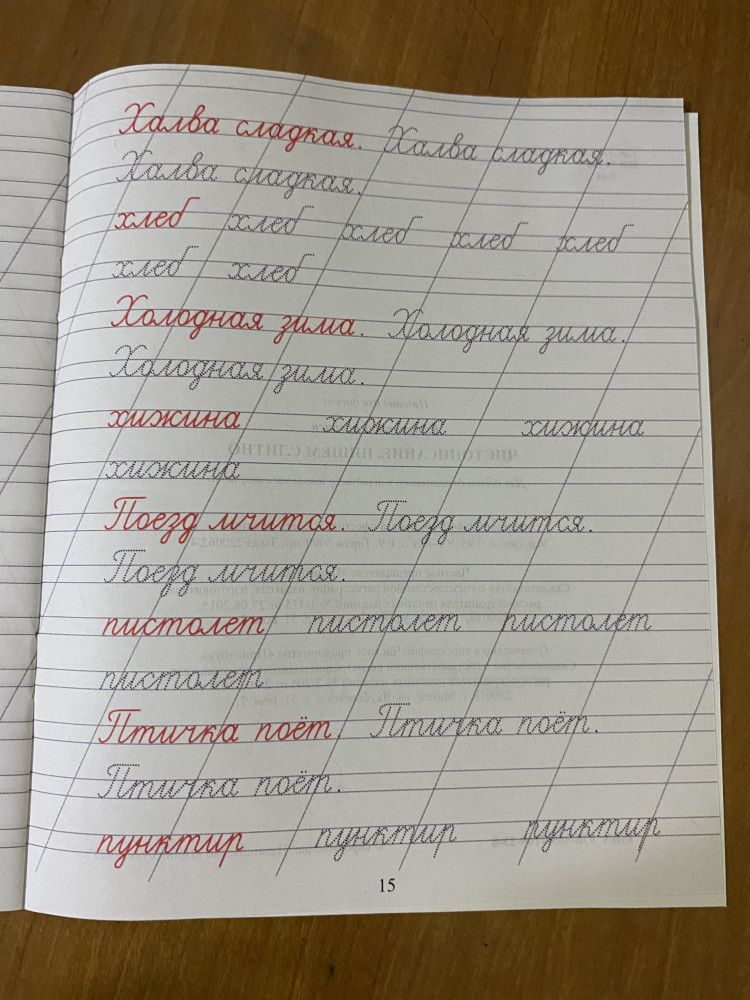 Халва сладкая. Халва сладкая.
Халва сладкая.
хлеб хлеб хлеб хлеб хлеб
хлеб хлеб
Холодная зима. Холодная зима.
Холодная зима.
хижина хижина хижина
хижина
Поезд мчится. Поезд мчится.
Поезд мчится.
пистолет пистолет пистолет
пистолет
Птичка поёт. Птичка поёт.
Птичка поёт.
пунктир пунктир пунктир
15